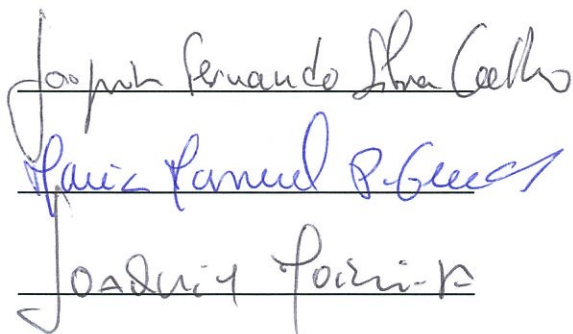 Joaquim Fernando Silva Coelho
Maria Manuel P.
Joaquim Moreira